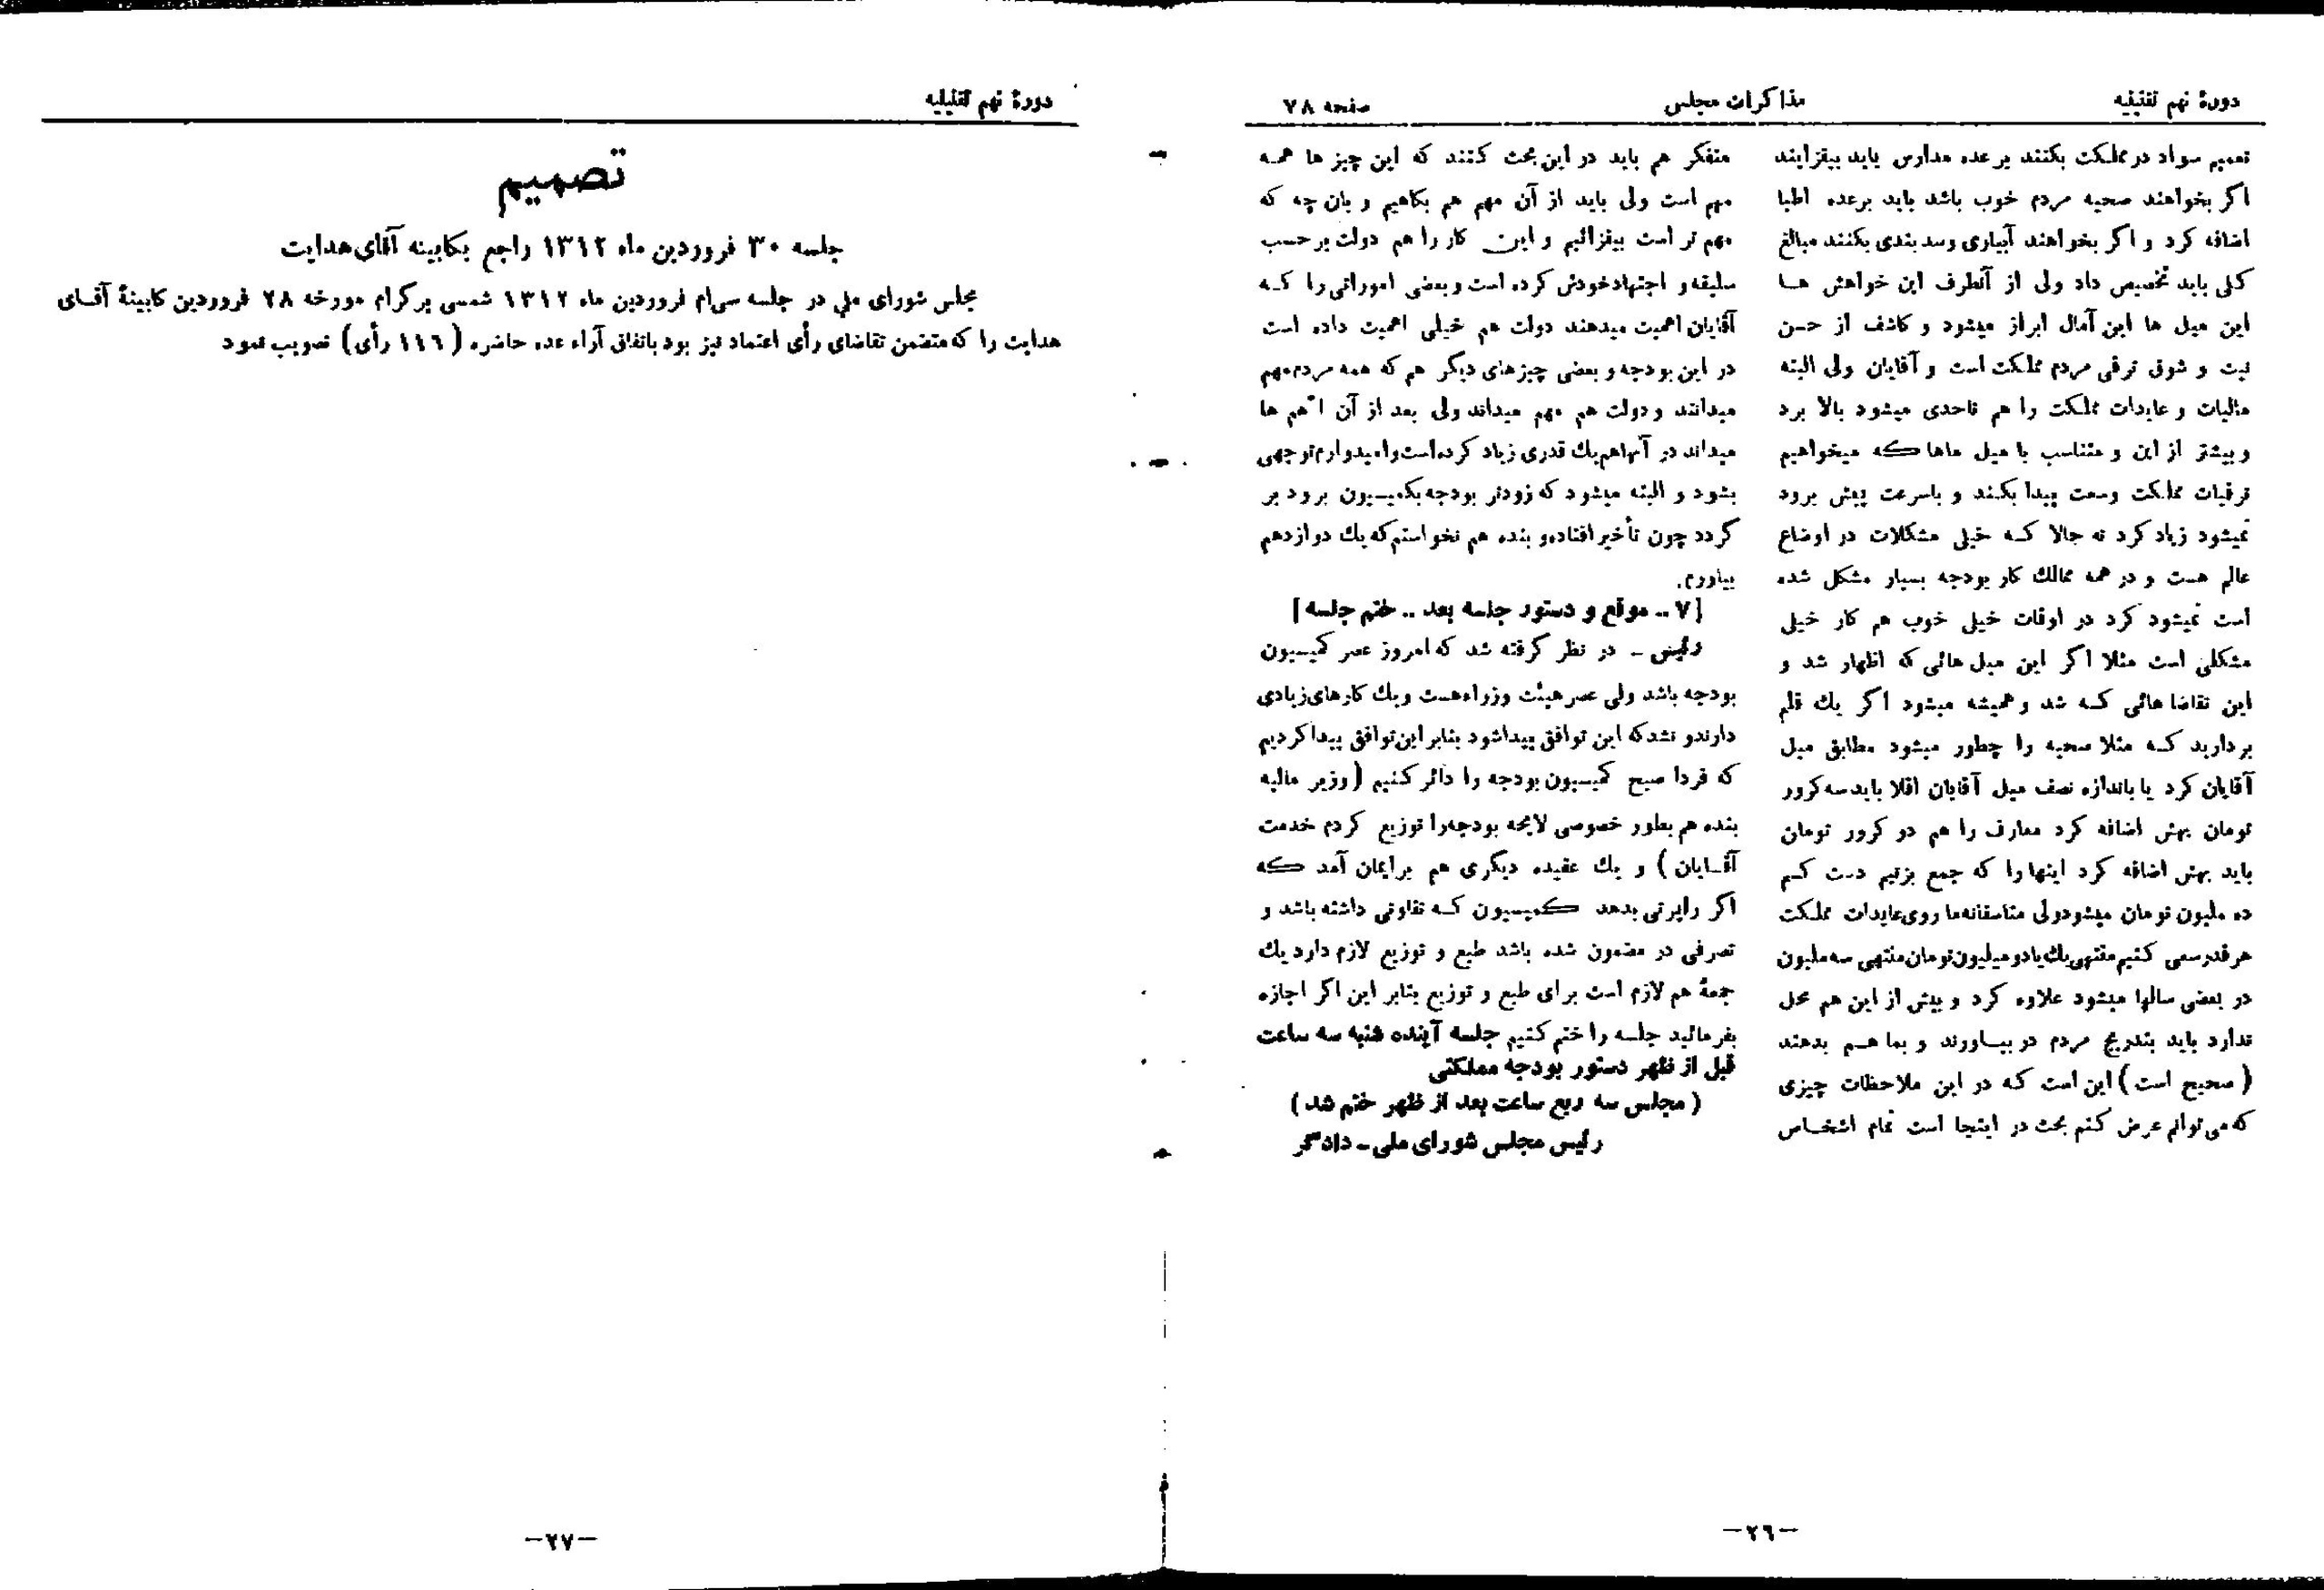 دورهٔ نهم تقنینیه
مذاکرات مجلس
صفحه ۷۸
تعمیم سواد در مملکت بکنند بر عده مدارس باید بیفزایند
اگر بخواهند صحیه مردم خوب باشد باید برعده اطبا
اضافه کرد و اگر بخواهند آبیاری وسد بندی بکنند مبالغ
کلی باید تخصیص داد ولی از آنطرف این خواهش هـا
این میل ها این آمال ابراز میشود و کاشف از حسن
نیت و شوق ترقی مردم مملکت است و آقایان ولی البته
مالیات و عایدات مملکت را هم تاحدی میشود بالا برد
وبیشتر از این و متناسب با میل ماها که میخواهیم
ترقیات مملکت وسعت پیدا بکند و باسرعت پیش برود
نمیشود زیاد کرد نه حالا کـه خیلی مشکلات در اوضاع
عالم هست و در همه ممالك کار بودجه بسیار مشکل شده
است نمیشود کرد در اوقات خیلی خوب هم کار خیلی
مشکلی است مثلا اگر این میل هائی که اظهار شد و
این تقاضا هائی کـه شد و همیشه میشود اگر یك قلم
بردارید کـه مثلا صحیه را چطور میشود مطابق میل
آقایان کرد یا باندازه نصف میل آقایان اقلا باید سه کرور
تومان بهش اضافه کرد معارف را هم دو کرور تومان
باید بهش اضافه کرد اینها را که جمع بزنیم دست کـم
ده ملیون تومان میشود ولی متاسفانه ما روی عایدات مملکت
هر قدر سعی کنیم منتهی یك یا دو میلیون تومان منتهی سه ملیون
در بعضی سالها میشود علاوه کرد و بیش از این هم محل
ندارد باید بتدریج مردم در بیـاورند و بما هـم بدهند
(صحیح است) این است که در این ملاحظات چیزی
که می توانم عرض کنم بحث در اینجا است تمام اشخـاص
متفکر هم باید در این بحث کنند که این چیز ها همـه
مهم است ولی باید از آن مهم هم بکاهیم و بان چه که
مهم تر است بیفزائیم و این کار را هم دولت بر حسب
سلیقه و اجتهاد خودش کرده است و بعضی اموراتی را کـه
آقایان اهمیت میدهند دولت هم خیلی اهمیت داده است
در این بودجه و بعضی چیزهای دیگر هم که همه مردم مهم
میدانند و دولت هم مهم میداند ولی بعد از آن اهم ها
میداند در آنها هم یك قدری زیاد کرده است و امیدوارم توجهی
بشود و البته میشود که زودتر بودجه بکمیسیون برود بر
گردد چون تأخیر افتاده و بنده هم نخواستم که یك دوازدهم
بیاورم.
[۷ ـ موقع و دستور جلسه بعد ـ ختم جلسه]
رئیس ـ در نظر گرفته شد که امروز عصر کمیسیون
بودجه باشد ولی عصر هیئت وزراء هست و یك کارهای زیادی
دارند و نشد که این توافق پیدا شود بنابر این توافق پیدا کردیم
که فردا صبح کمیسیون بودجه را دائر کنیم (وزیر مالیه
بنده هم بطور خصوصی لایحه بودجه را توزیع کردم خدمت
آقـایان) و یك عقیده دیگری هم برایمان آمد که
اگر راپرتی بدهد کمیسیون کـه تفاوتی داشته باشد و
تصرفی در مضمون شده باشد طبع و توزیع لازم دارد یك
جمعهٔ هم لازم است برای طبع و توزیع بنابر این اگر اجازه
بفرمائید جلسه را ختم کنیم جلسه آینده شنبه سه ساعت
قبل از ظهر دستور بودجه مملکتی
(مجلس سه ربع ساعت بعد از ظهر ختم شد)
رئیس مجلس شورای ملی ـ دادگر
—۲۶—
دورهٔ نهم تقنینیه
تصمیم
جلسه ۳۰ فروردین ماه ۱۳۱۲ راجع بکابینه آقای هدایت
مجلس شورای ملی در جلسه سی‌ام فروردین ماه ۱۳۱۲ شمسی پرگرام مورخه ۲۸ فروردین کابینهٔ آقـای
هدایت را که متضمن تقاضای رأی اعتماد نیز بود باتفاق آراء عده حاضره (۱۱۶ رأی) تصویب نمود
—۲۷—